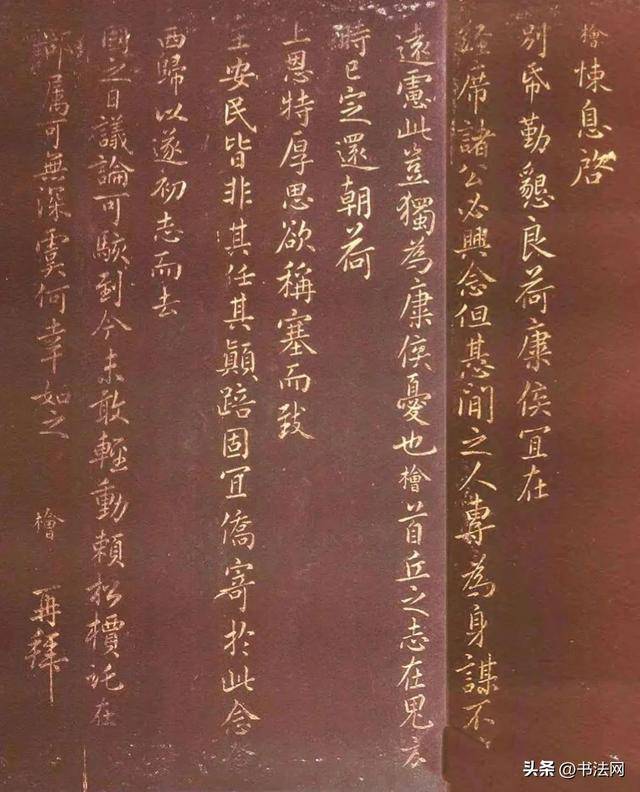 檜悚息啓
別帋勤懇良荷康侯冝在
經席諸公必興念但基間之人專為身謀不
遠慮此豈獨為康侯憂也檜首丘之志在見
時已定還朝荷
上恩特厚思欲稱塞而致
主安民皆非其任其顛踣固冝僑寄扵此念
西歸以遂初志而去
國之日議論可駭到今未敢輕動賴松檟託在
部属可無深虞何幸如之 檜 再拜
头条@书法网